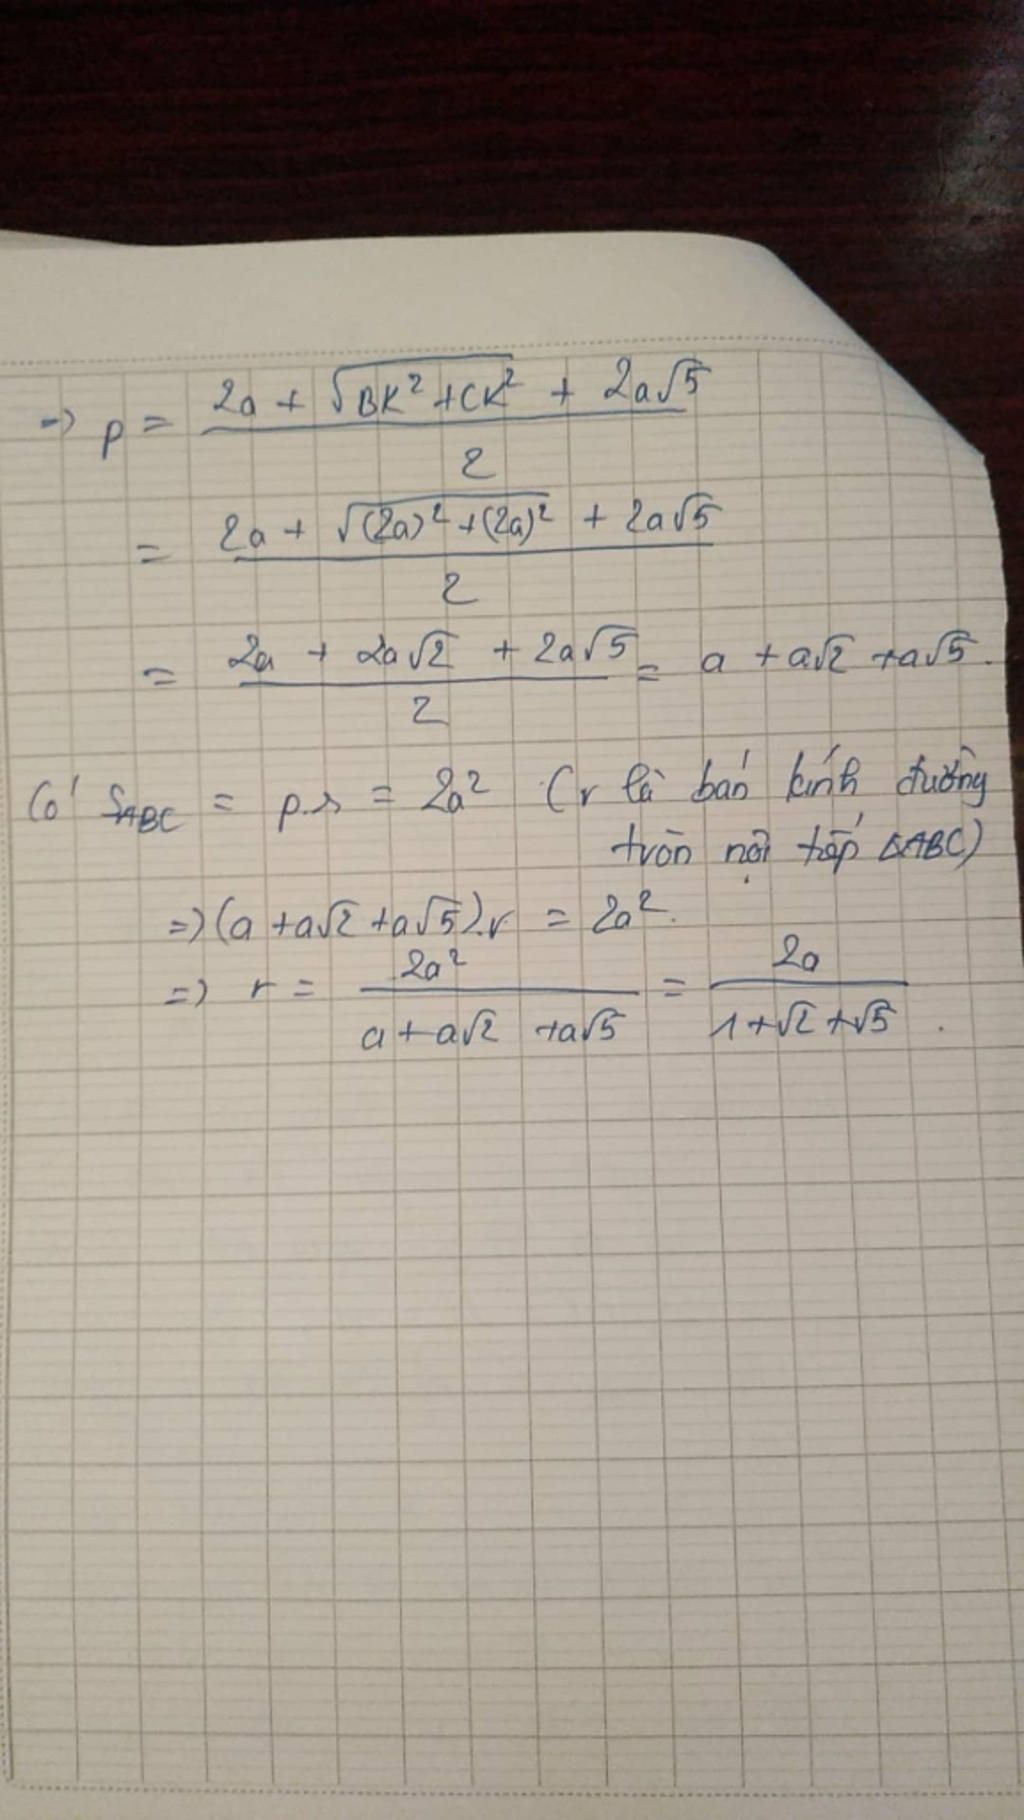 => p = (2a + √(BK² + CK²) + 2a√5) / 2
= (2a + √((2a)² + (2a)²) + 2a√5) / 2
= (2a + 2a√2 + 2a√5) / 2 = a + a√2 + a√5.
Có S_ABC = p.r = 2a² (r là bán kính đường
tròn nội tiếp ΔABC)
=> (a + a√2 + a√5).r = 2a².
=> r = 2a² / (a + a√2 + a√5) = 2a / (1 + √2 + √5).